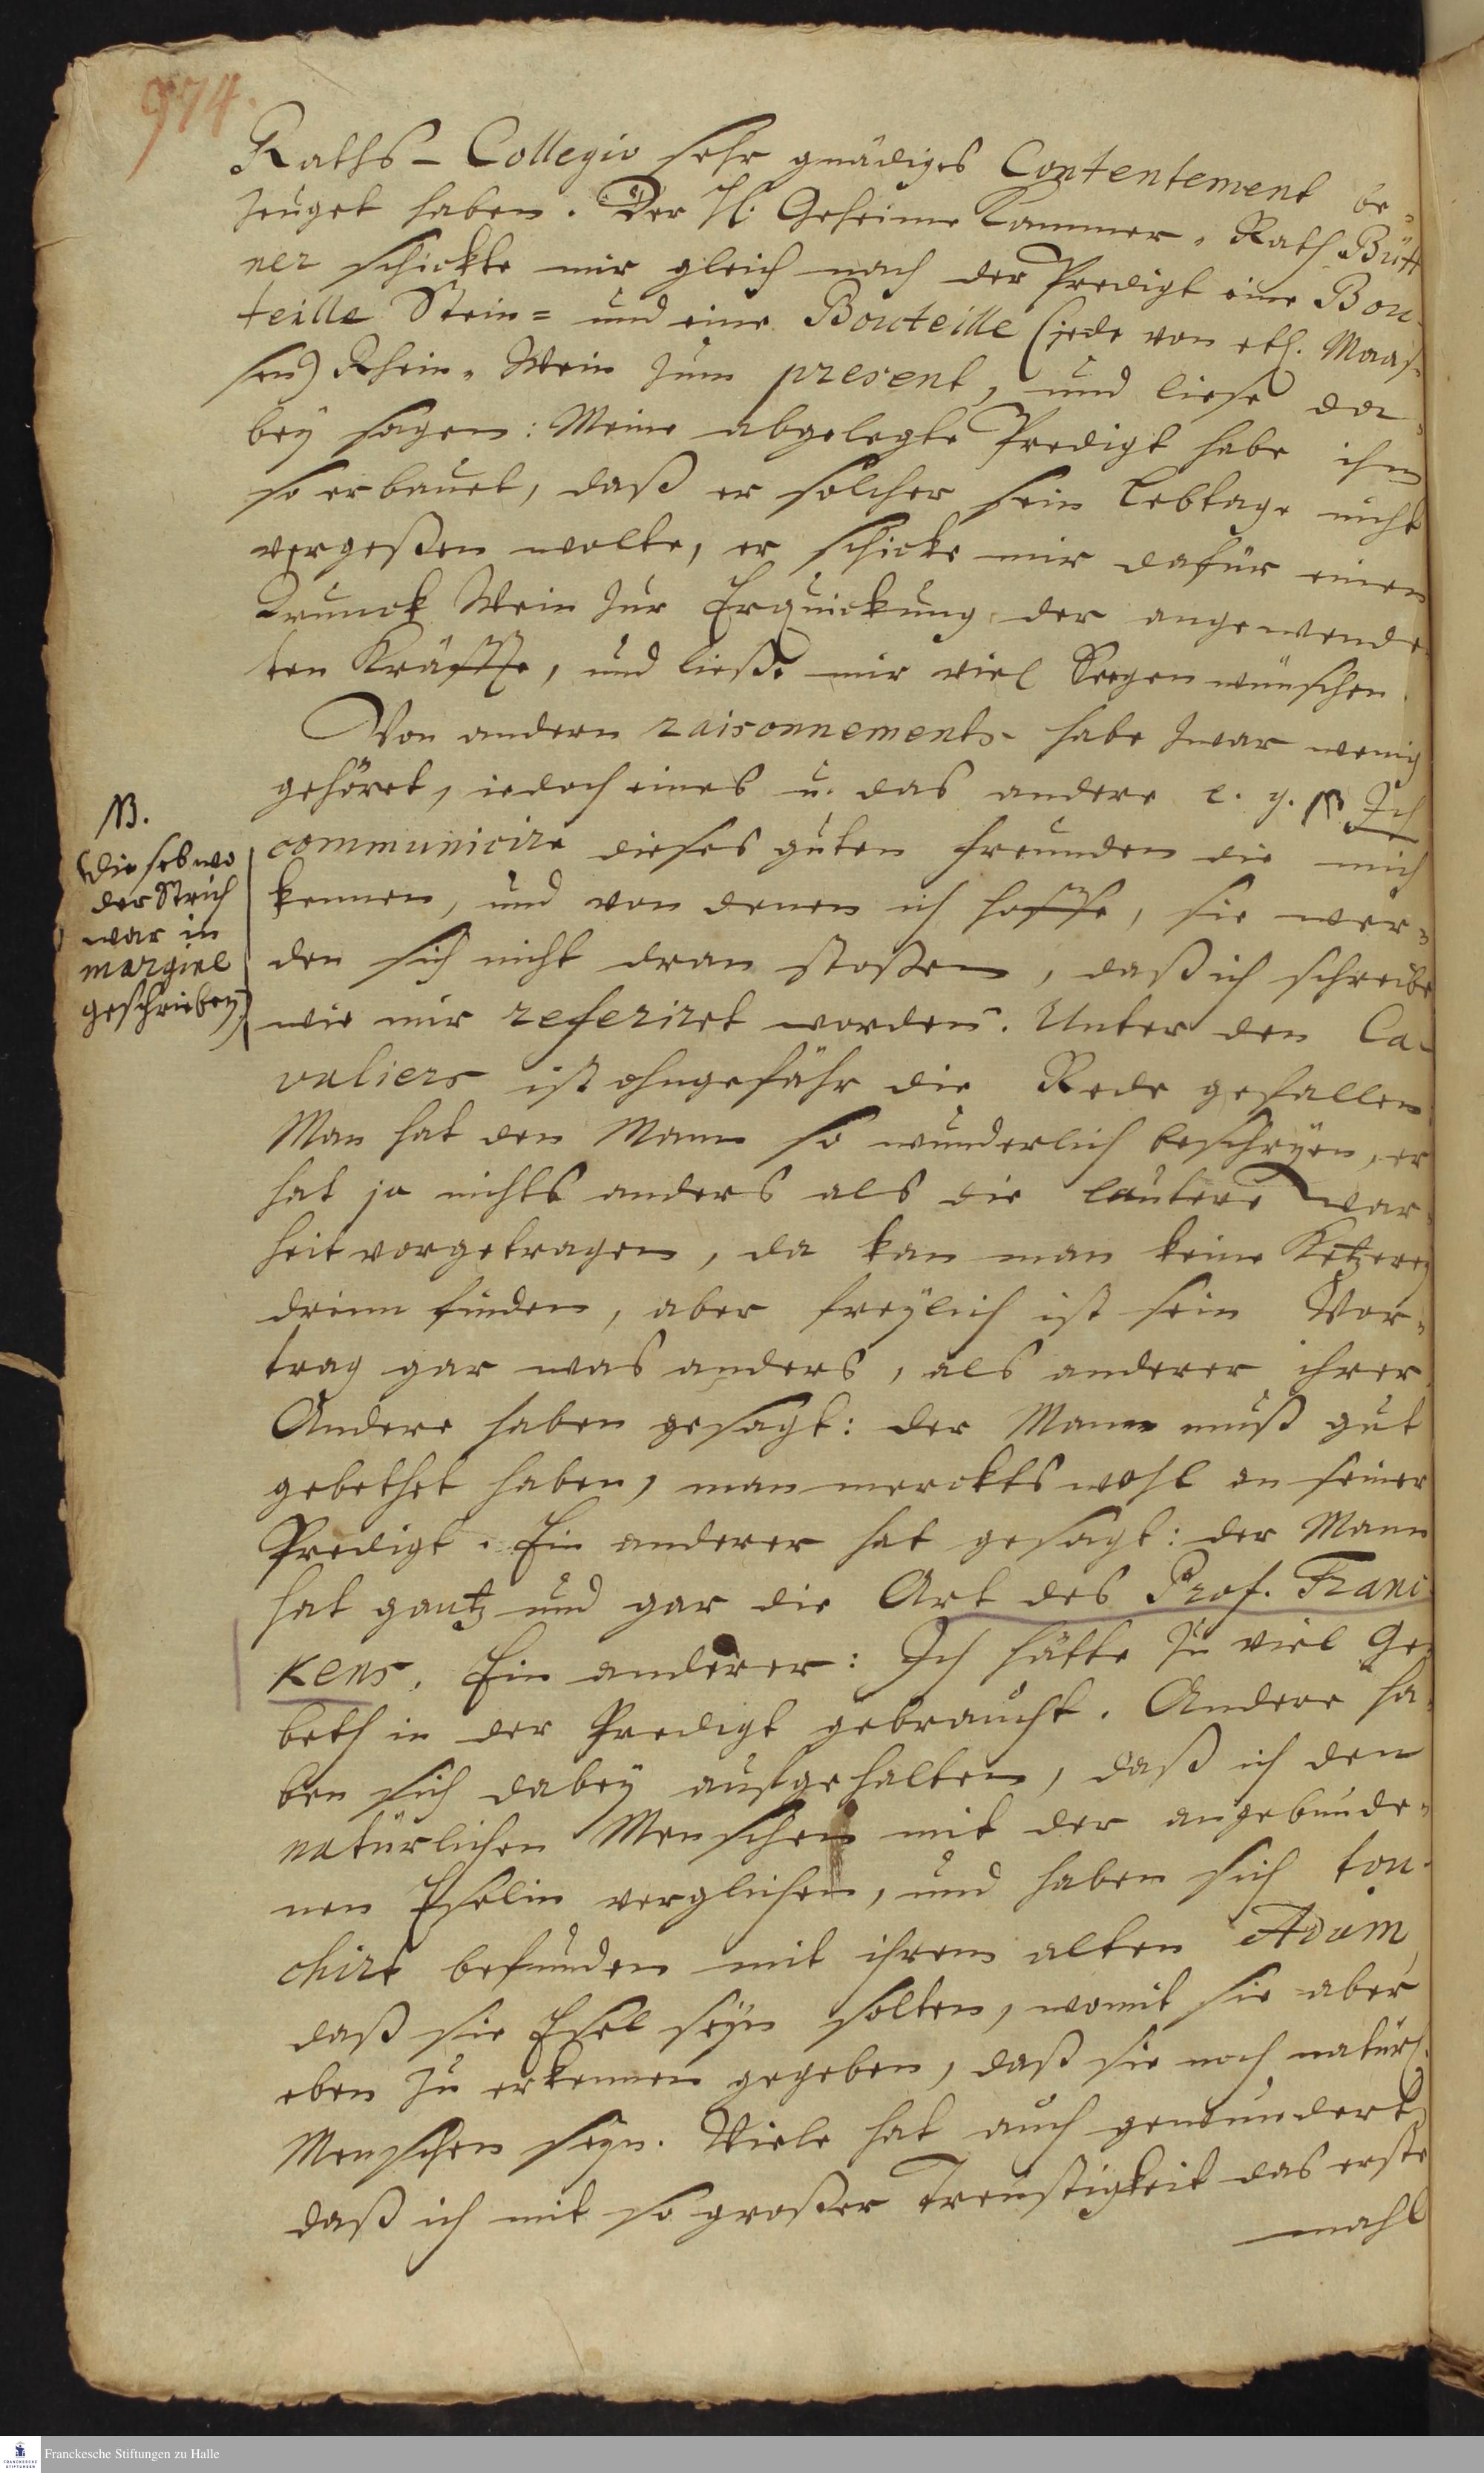 974.
Raths-Collegio sehr gnädiges Contentement be-
zeuget haben. Der H. Geheime Cammer-Rath Bütt
ner schickte mir gleich nach der Predigt eine Bou-
teille Stein- und eine Bouteille (jede von etl. Maas-
sen) Rhein-Wein zum present, und liese da-
bey sagen: Meine abgelegte Predigt habe ihn
so erbauet, daß er solcher sein Lebtage nicht
vergeßen wolte, er schicke mir dafür einen
Trunck Wein zur Erquickung der angewende-
ten Kräffte, und ließe mir viel Seegen wünschen.
Von andern raisonnements habe zwar wenig
gehöret, iedoch eines u. das andere e. g. NB Ich
communicire dieses guten Freunden die mich
kennen, und von denen ich hoffe, sie wer-
den sich nicht dran stoßen, daß ich schreibe
wie mir referiret worden. Unter den Ca-
valiers ist ohngefähr die Rede gefallen:
Man hat den Mann so wunderlich beschryen, er
hat ja nichts anders als die lautere War-
heit vorgetragen, da kan man keine Ketzerey
drinn finden, aber freylich ist sein Vor-
trag gar was anders, als anderer ihrer.
Andere haben gesagt: der Mann muß gut
gebethet haben, man merckts wohl an seiner
Predigt. Ein anderer hat gesagt: der Mann
hat gantz und gar die Art des Prof. Franc
kens. Ein anderer: Ich hätte zu viel Ge-
beth in der Predigt gebraucht. Andere ha-
ben sich dabey aufgehalten, daß ich den
natürlichen Menschen mit der angebunde-
nen Eselin verglichen, und haben sich tou-
chirt befunden mit ihrem alten Adam,
daß sie Esel seyn solten, womit sie aber
eben zu erkennen gegeben, daß sie noch natürl.
Menschen seyn. Viele hat auch gewundert,
daß ich mit so großer Freustigkeit das erste
mahl
NB.
(dieses wo
der Strich
war in
margine
geschrieben)
Franckesche Stiftungen zu Halle